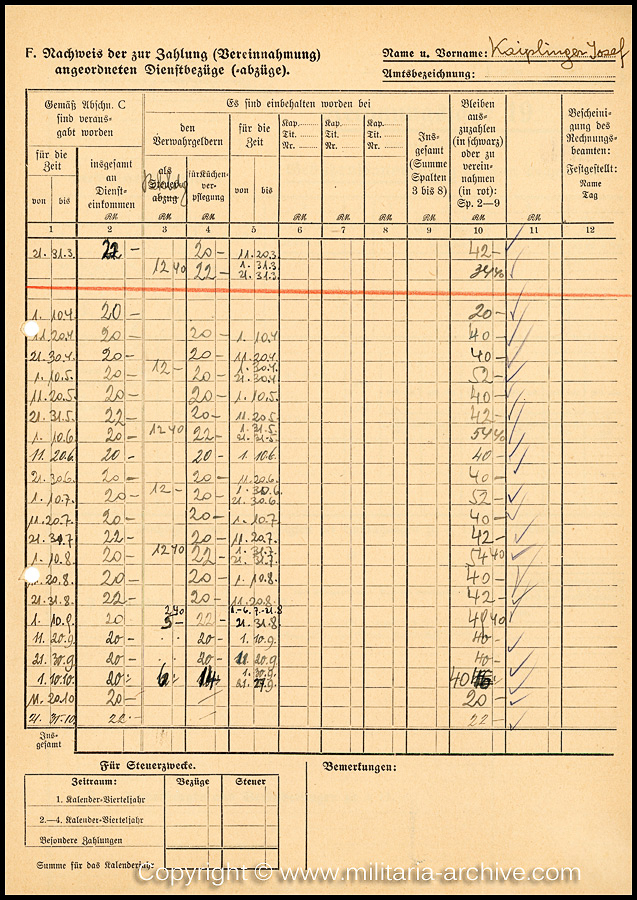 F. Nachweis der zur Zahlung (Vereinnahmung)
angeordneten Dienstbezüge (-abzüge).
Name u. Vorname: Kaiplinger Josef
Amtsbezeichnung:
Gemäß Abschn. C
sind veraus-
gabt worden
Es sind einbehalten worden bei
den
Verwahrgeldern
für die
Zeit
Kap. Kap. Kap.
Tit. Tit. Tit.
Nr. Nr. Nr.
Ins-
gesamt
(Summe
Spalten
3 bis 8)
Bleiben
aus-
zuzahlen
(in schwarz)
oder zu
verein-
nahmen
(in rot):
Sp. 2—9
Bescheini-
gung des
Rechnungs-
beamten:
Festgestellt:
Name
Tag
für die
Zeit
von bis
insgesamt
an
Dienst-
einkommen
als
abzug
für Küchen-
ver-
pflegung
von bis
RM RM RM RM RM RM RM RM RM
1 2 3 4 5 6 7 8 9 10 11 12
21. 31.3. 22 — 20 — 11. 20.3. 42 —
12 40 22 — 1. 31.3. 21. 31.3. 34 40
1. 10.4. 20 — 20 —
11. 20.4. 20 — 20 — 1. 10.4. 40 —
21. 30.4. 20 — 20 — 11. 20.4. 40 —
1. 10.5. 20 — 12 — 20 — 1. 30.4. 21. 30.4. 52 —
11. 20.5. 20 — 20 — 1. 10.5. 40 —
21. 31.5. 22 — 20 — 11. 20.5. 42 —
1. 10.6. 20 — 12 40 22 — 1. 31.5. 21. 31.5. 54 40
11. 20.6. 20 — 20 — 1. 10.6. 40 —
21. 30.6. 20 — 20 — 11. 20.6. 40 —
1. 10.7. 20 — 12 — 20 — 1. 30.6. 21. 30.6. 52 —
11. 20.7. 20 — 20 — 1. 10.7. 40 —
21. 31.7. 22 — 20 — 11. 20.7. 42 —
1. 10.8. 20 — 12 40 22 — 1. 31.7. 21. 31.7. 54 40
11. 20.8. 20 — 20 — 1. 10.8. 40 —
21. 31.8. 22 — 20 — 11. 20.8. 42 —
1. 10.9. 20 2 40 5 — 22 — 1.-6.7.-21.8 21. 31.8. 49 40
11. 20.9. 20 — 20 — 1. 10.9. 40 —
21. 30.9. 20 — 20 — 11. 20.9. 40 —
1. 10.10. 20 — 6 — 14 — 1. 30.9. 21. 27.9. 40
11. 20.10 20 — 20 —
21. 31.10 22 — 22 —
Ins-
gesamt
Für Steuerzwecke.
Zeitraum: Bezüge Steuer
1. Kalender-Vierteljahr
2.—4. Kalender-Vierteljahr
Besondere Zahlungen
Summe für das Kalenderjahr
Bemerkungen:
Copyright © www.militaria-archive.com